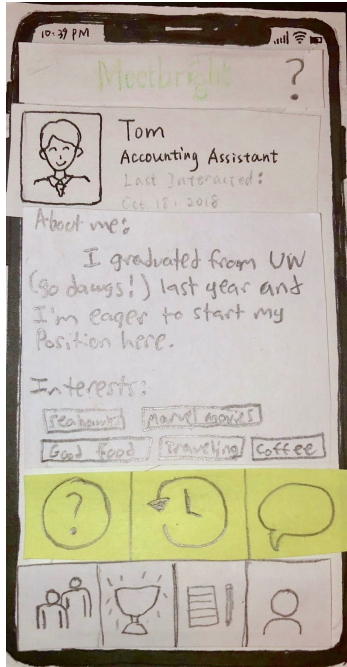 10:39 PM
Meetbright
?
Tom
Accounting Assistant
Last Interacted:
Oct 18, 2018
About me:
I graduated from UW
(go dawgs!) last year and
I'm eager to start my
Position here.
Interests:
Seahawks Marvel movies
Good food Traveling Coffee
?